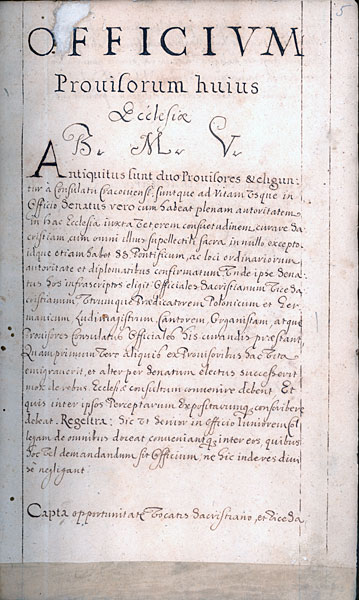 5
OFFICIVM
Prouisorum huius
Ecclesiæ
B. M. V.
Antiquitus sunt duo Prouisores & eligun:
tur à Consulatu Cracouiensi, suntque ad Vitam Vsque in
Officio Senatus vero cum habeat plenam autoritatem
in hac Ecclesia iuxta Veterem consuetudinem, curare Sa
cristiam cum omni illius supellectili sacra in nullo excepto
idque etiam habet SS Pontificum, ac loci ordinariorum
autoritate et diplomatibus confirmatum Vnde ipse Sena:
tus hos infrascriptos eligit Officiales Sacristianum Vice Sa
cristianum Vtrumque Prædicatorem Polonicum et Ger
manicum Ludimagistrum Cantorem Organistam atque
Prouisores Consulatus Officiales his curandis præstant,
Quamprimum Vero aliquis ex Prouisoribus hac Vita
emigrauerit, et alter per Senatum electus successerit
mox de rebus Ecclesiæ consultum conuenire debent Et
quis inter ipsos Perceptarum Expositarumque conscribere
debeat. Regestra: Sic Vt Senior in officio Iuniorem col
legam de omnibus doceat, conueniantque inter eos, quibus
hoc Vel demandandum sit Officium, ne hic inde res diui
næ negligant
Capta opportunitate Vocatis Sacristiano, et Vice Sa